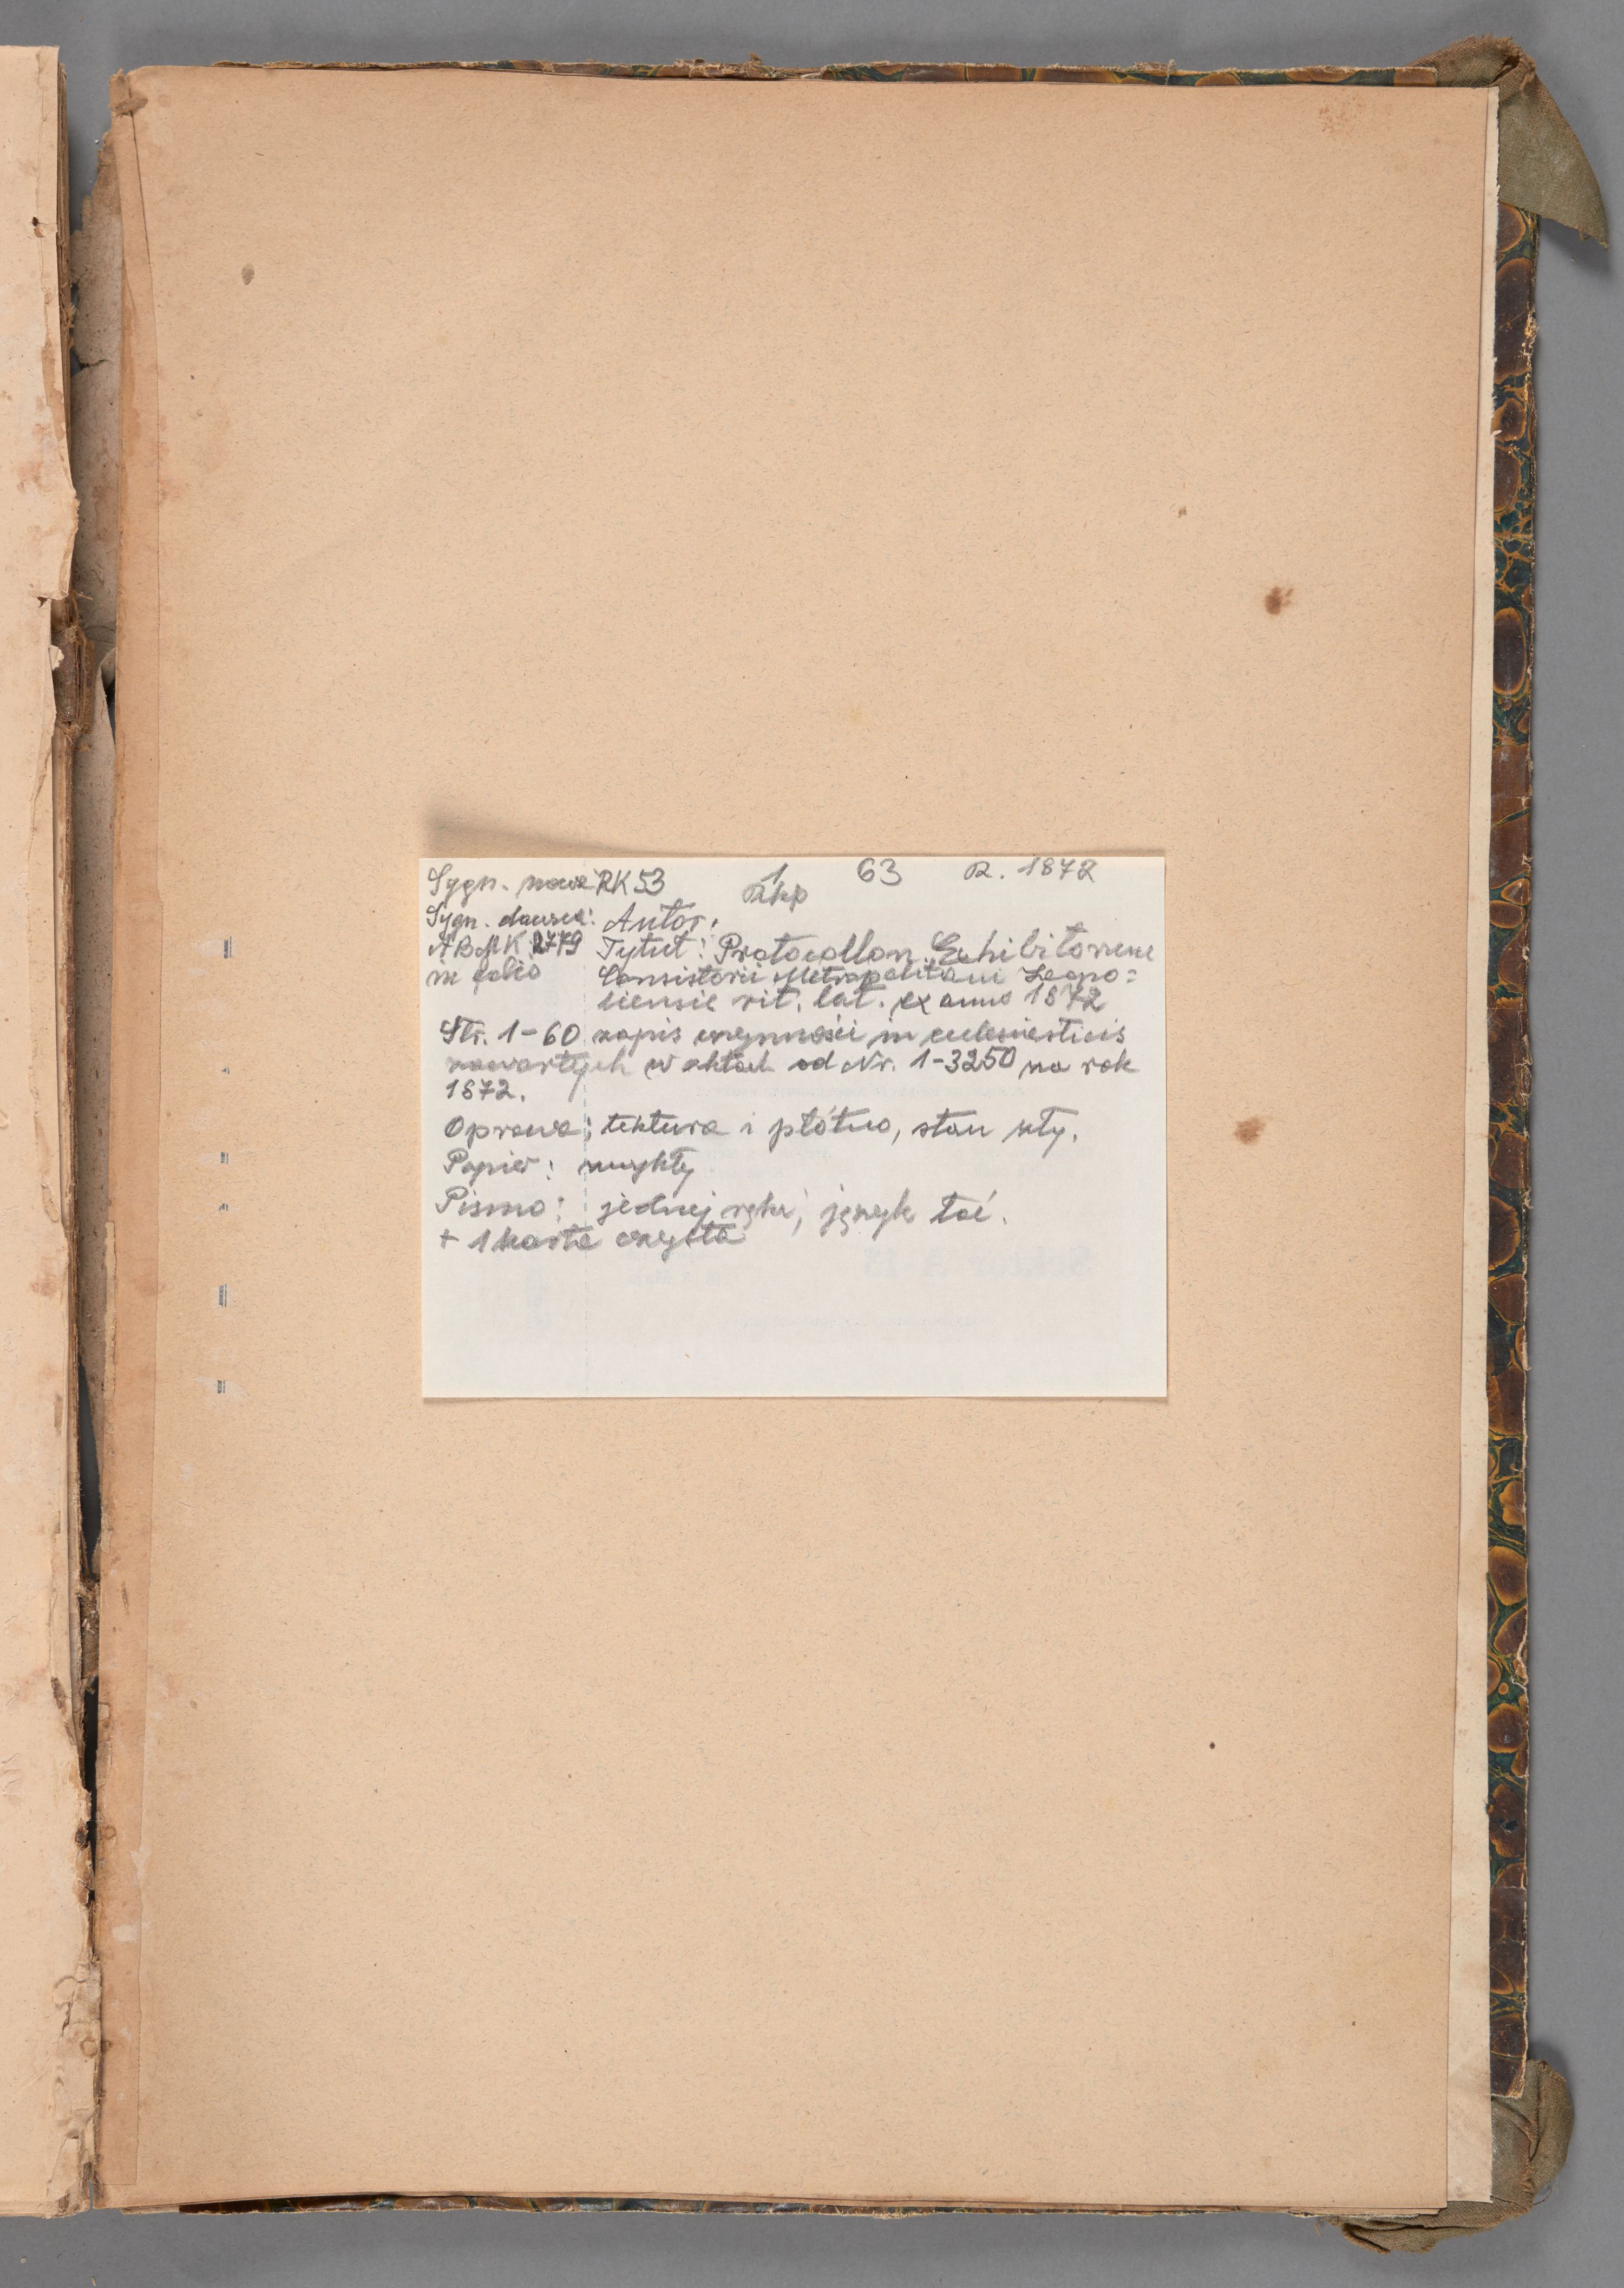 Sygn. nowa RK 53 1 63 R. 1872
Rkp
Sygn. dawna: Autor:
ABMK 2779 Tytuł: Protocollon Exhibitorum
in folio Consistorii Metropolitani Leopo=
liensis rit. lat. ex anno 1872
Str. 1-60 zapis czynności in ecclesiasticis
zawartych w aktach od Nr. 1-3250 na rok
1872.
Oprawa: tektura i płótno, stan zły.
Papier: zwykły
Pismo: jednej ręki, język łać.
+ 1 karta czysta